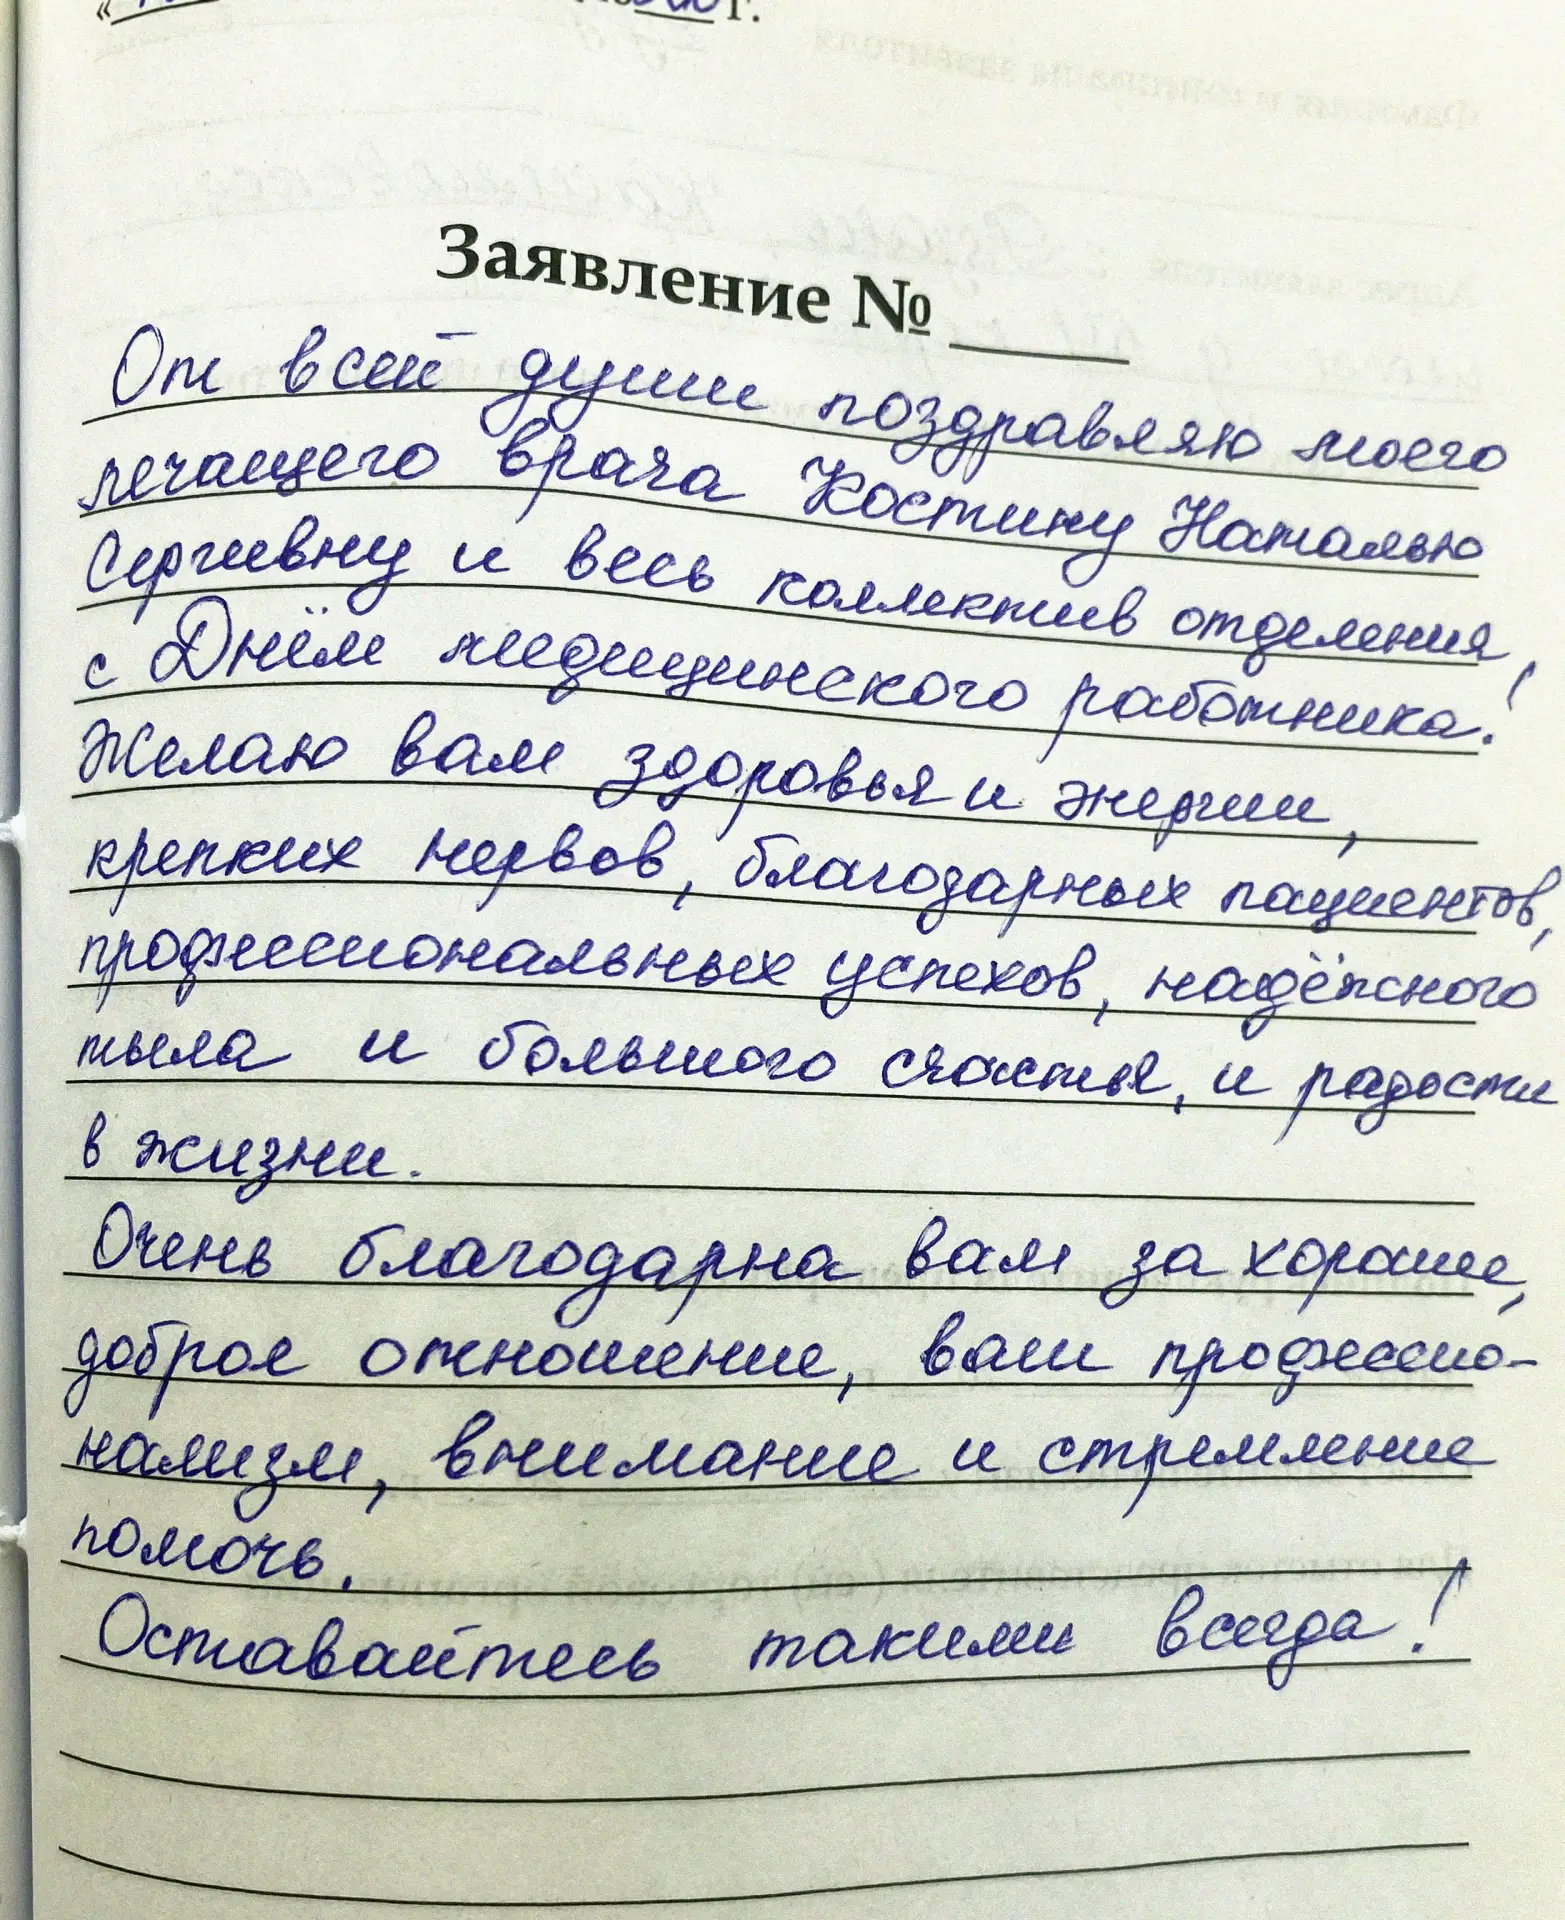 Г.
Заявление №
От всей души поздравляю моего
лечащего врача Костину Наталью
Сергеевну и весь коллектив отделения,
с Днём медицинского работника!
Желаю вам здоровья и энергии,
крепких нервов, благодарных пациентов,
профессиональных успехов, надёжного
тыла и большого счастья, и радости
в жизни.
Очень благодарна вам за хорошее,
доброе отношение, ваш профессио-
нализм, внимание и стремление
помочь.
Оставайтесь такими всегда!